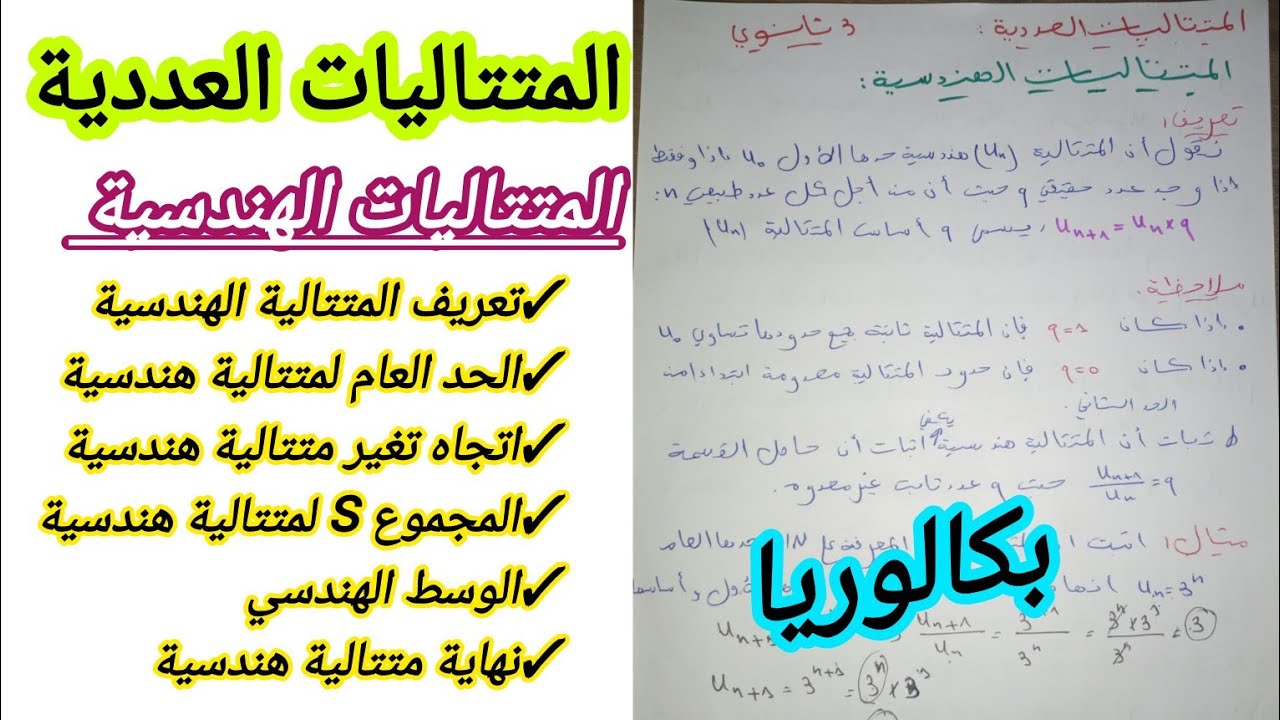 المتتاليات العددية
المتتاليات الهندسية
✓تعريف المتتالية الهندسية
✓الحد العام لمتتالية هندسية
✓اتجاه تغير متتالية هندسية
✓المجموع S لمتتالية هندسية
✓الوسط الهندسي
✓نهاية متتالية هندسية
المتتاليات العددية: 3 ثانوي
المتتاليات الهندسية:
تعريف:
نقول أن المتتالية (Un) هندسية حدها الأول U0 إذا وفقط
إذا وجد عدد حقيقي q حيث أن من أجل كل عدد طبيعي n:
Un+1 = Un × q، يسمى q أساس المتتالية (Un)
ملاحظة.
• إذا كان q=1 فإن المتتالية ثابتة جميع حدودها تساوي U0
• إذا كان q=0 فإن حدود المتتالية معدومة ابتداء من
الحد الثاني.
يعني
إثبات أن المتتالية هندسية إثبات أن حاصل القسمة
Un+1/Un = q حيث q عدد ثابت غير معدوم.
مثال: اثبت المعرفة على IN حدها العام
Un = 3^n أنها الأول وأساسها
Un+1/Un = 3^n+1/3^n = 3^n×3/3^n = 3
Un+1 = 3^n+1 = 3^n × 3
بكالوريا